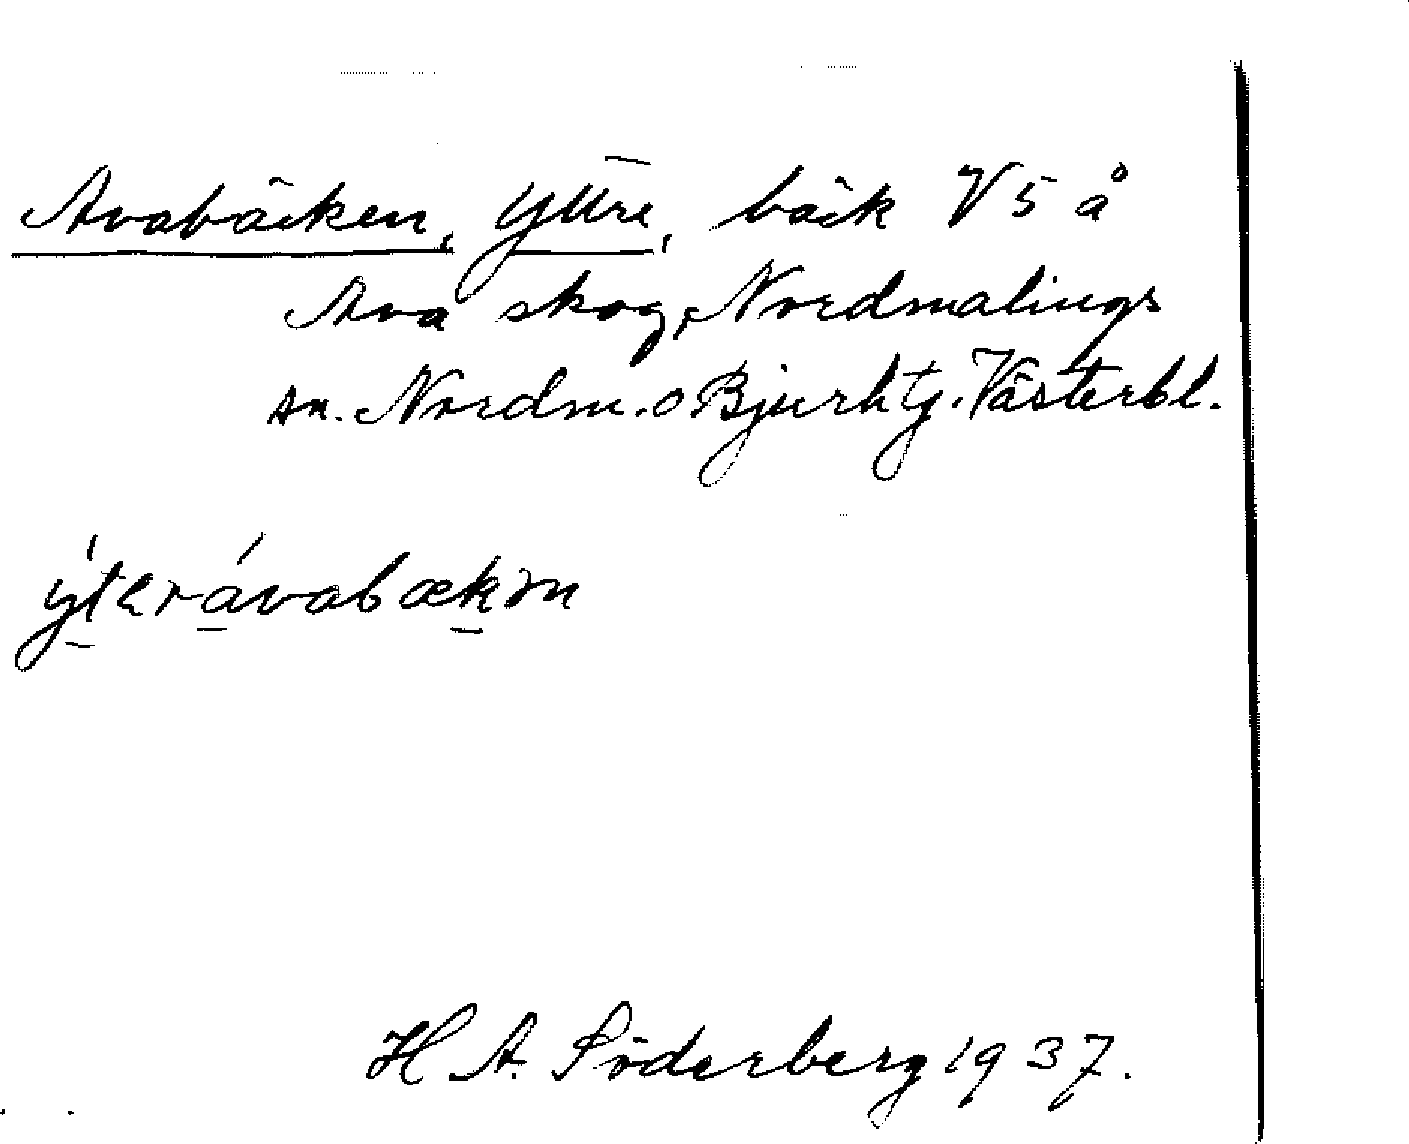 Avabäcken, Yttre, bäck V 5 å
Ava skog, Nordmalings
sn. Nordm. o Bjurh tg. Västerbl.
ýterávabækən
H A. Söderberg 1937.